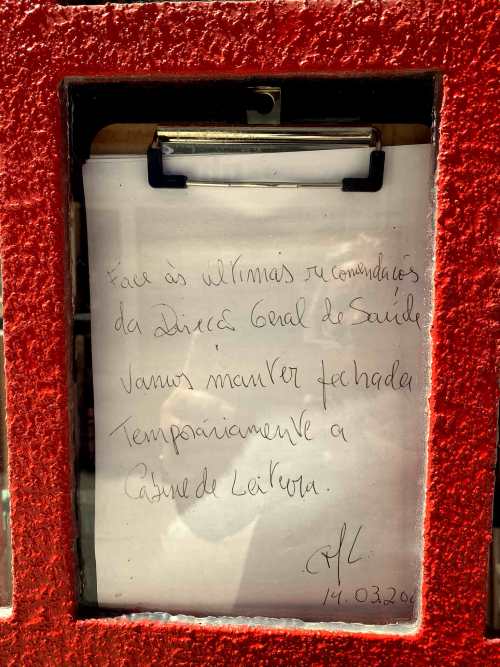 Face às ultimas recomendacões
da Direcã Geral de Saúde
vamos manter fechada
Temporáriamente a
Cabine de Leitura.
14.03.20